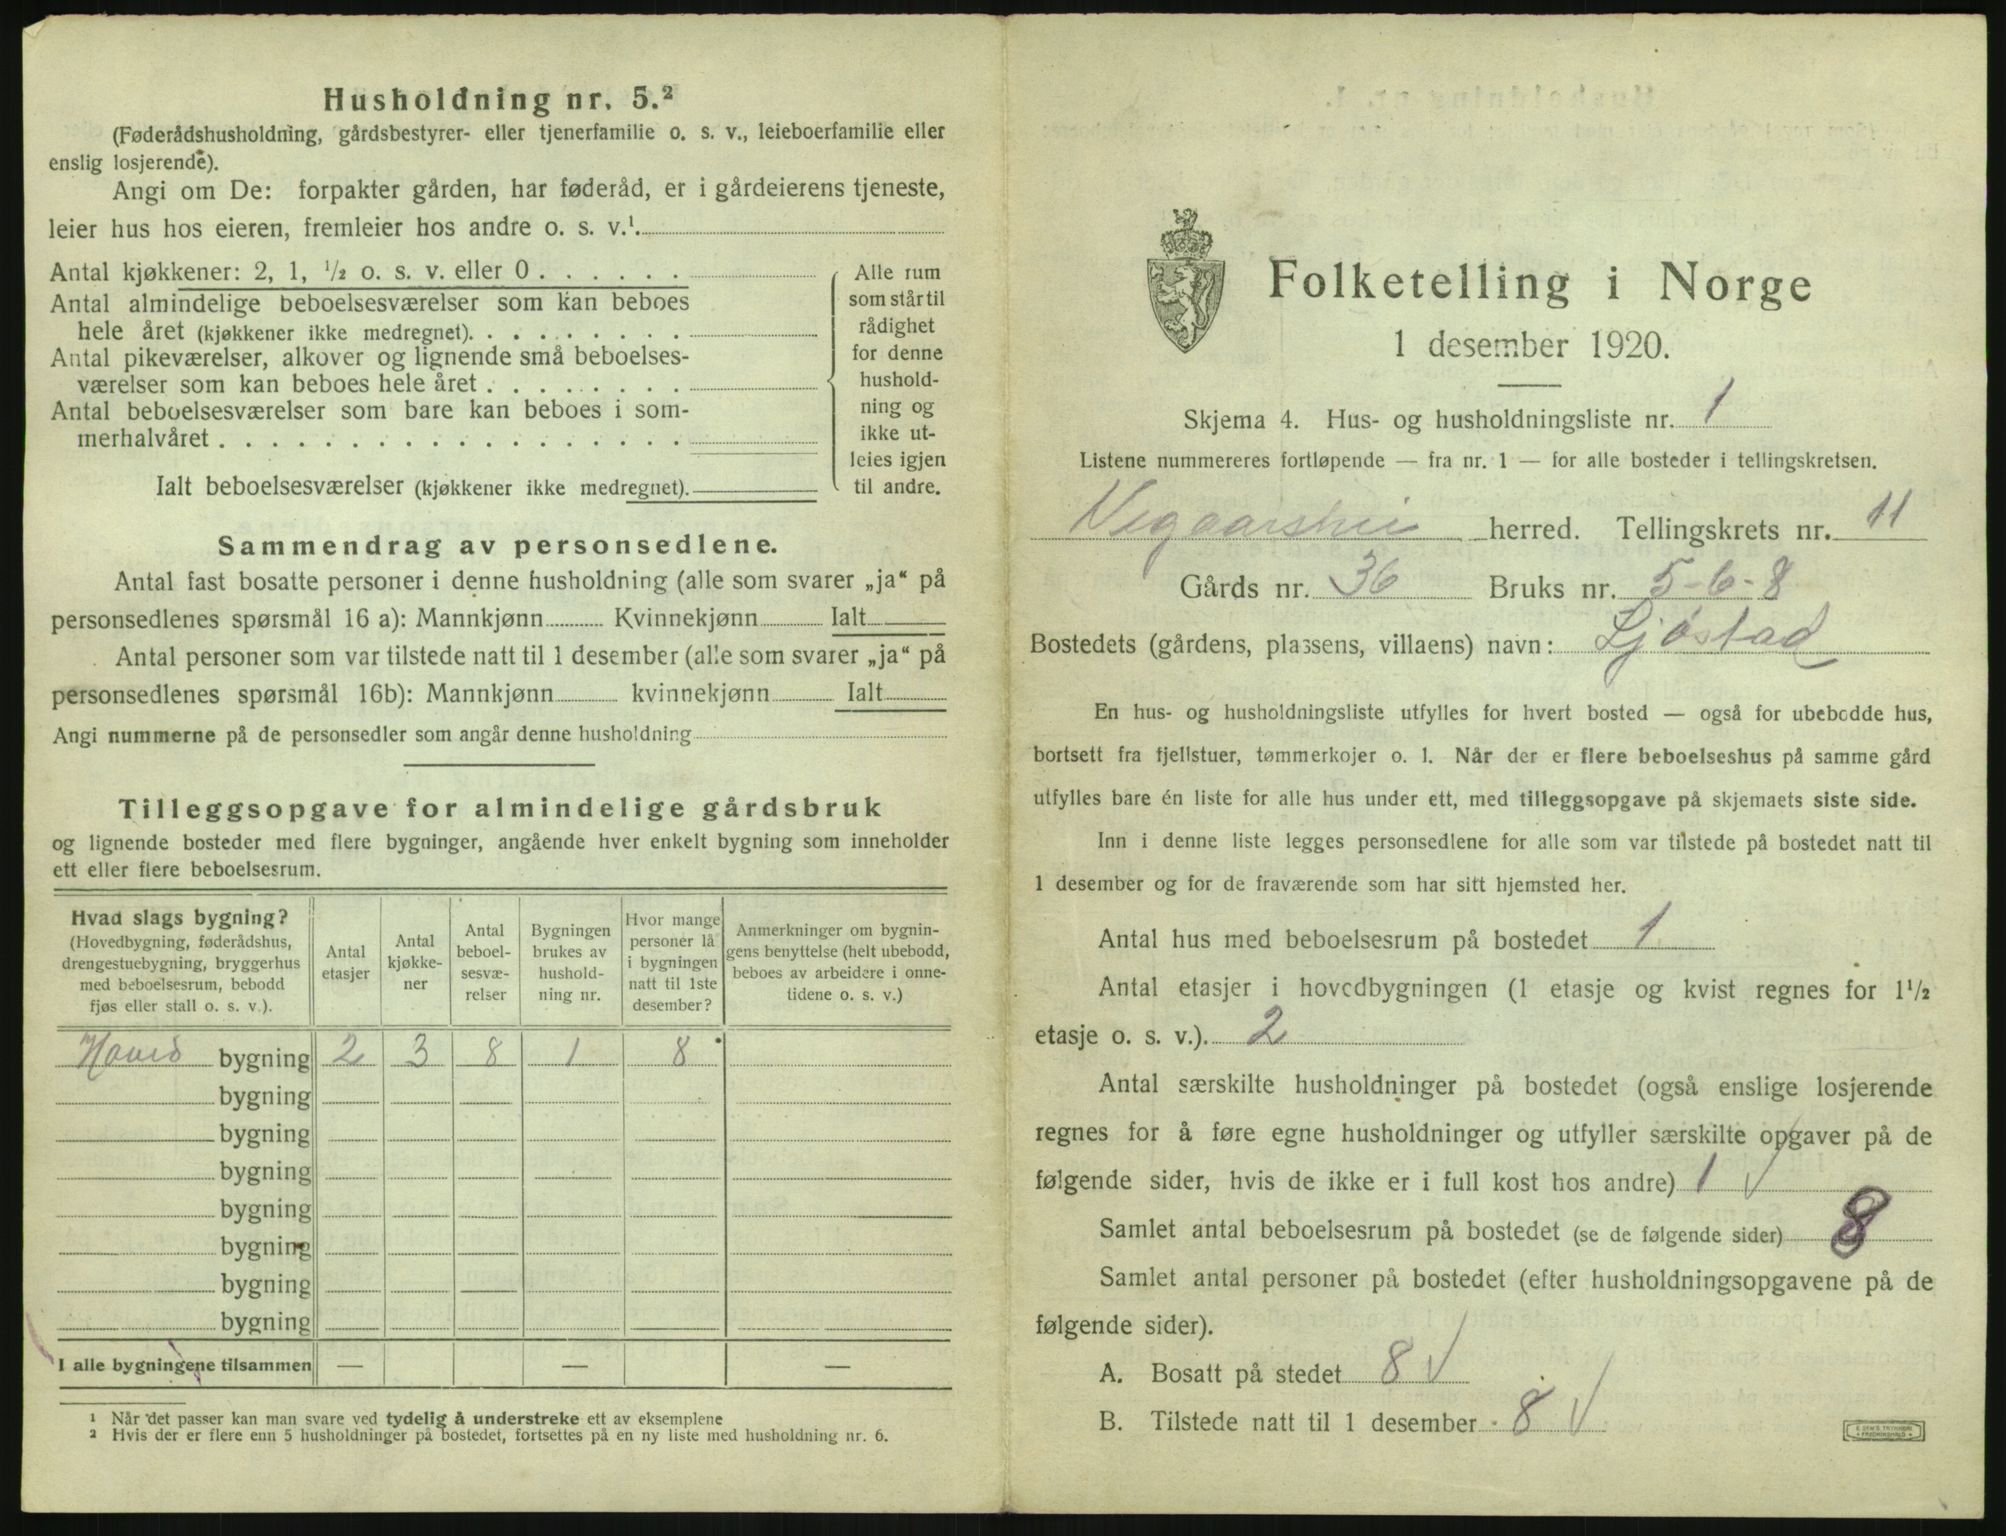 Husholdning nr. 5.²
(Føderådshusholdning, gårdsbestyrer- eller tjenerfamilie o. s. v., leieboerfamilie eller
enslig losjerende).
Angi om De: forpakter gården, har føderåd, er i gårdeierens tjeneste,
leier hus hos eieren, fremleier hos andre o. s. v.¹.
Antal kjøkkener: 2, 1, ½ o. s. v. eller 0 . . . . . .
Antal almindelige beboelsesværelser som kan beboes
hele året (kjøkkener ikke medregnet). . . . . . . . .
Antal pikeværelser, alkover og lignende små beboelses-
værelser som kan beboes hele året . . . . . . . .
Antal beboelsesværelser som bare kan beboes i som-
merhalvåret . . . . . . . . . . . . . . . . . .
Ialt beboelsesværelser (kjøkkener ikke medregnet).
Alle rum
som står til
rådighet
for denne
hushold-
ning og
ikke ut-
leies igjen
til andre.
Sammendrag av personsedlene.
Antal fast bosatte personer i denne husholdning (alle som svarer „ja“ på
personsedlenes spørsmål 16 a): Mannkjønn Kvinnekjønn Ialt
Antal personer som var tilstede natt til 1 desember (alle som svarer „ja“ på
personsedlenes spørsmål 16b): Mannkjønn kvinnekjønn Ialt
Angi nummerne på de personsedler som angår denne husholdning
Tilleggsopgave for almindelige gårdsbruk
og lignende bosteder med flere bygninger, angående hver enkelt bygning som inneholder
ett eller flere beboelsesrum.
Hvad slags bygning?
(Hovedbygning, føderådshus,
drengestuebygning, bryggerhus
med beboelsesrum, bebodd
fjøs eller stall o. s. v.).
Antal
etasjer
Antal
kjøkke-
ner
Antal
beboel-
sesvæ-
relser
Bygningen
brukes av
hushold-
ning nr.
Hvor mange
personer lå
i bygningen
natt til 1ste
desember?
Anmerkninger om bygnin-
gens benyttelse (helt ubebodd,
beboes av arbeidere i onne-
tidene o. s. v.)
bygning 2 3 8 1 8
bygning
bygning
bygning
bygning
bygning
bygning
bygning
I alle bygningene tilsammen — — —
¹ Når det passer kan man svare ved tydelig å understreke ett av eksemplene
² Hvis der er flere enn 5 husholdninger på bostedet, fortsettes på en ny liste med husholdning nr. 6.
Folketelling i Norge
1 desember 1920.
Skjema 4. Hus- og husholdningsliste nr. 1
Listene nummereres fortløpende — fra nr. 1 — for alle bosteder i tellingskretsen.
Vegaarshei herred. Tellingskrets nr. 11
Gårds nr. 36 Bruks nr. 5-6-8
Bostedets (gårdens, plassens, villaens) navn: Ljøstad
En hus- og husholdningsliste utfylles for hvert bosted — også for ubebodde hus,
bortsett fra fjellstuer, tømmerkojer o. l. Når der er flere beboelseshus på samme gård
utfylles bare én liste for alle hus under ett, med tilleggsopgave på skjemaets siste side.
Inn i denne liste legges personsedlene for alle som var tilstede på bostedet natt til
1 desember og for de fraværende som har sitt hjemsted her.
Antal hus med beboelsesrum på bostedet 1
Antal etasjer i hovedbygningen (1 etasje og kvist regnes for 1½
etasje o. s. v.). 2
Antal særskilte husholdninger på bostedet (også enslige losjerende
regnes for å føre egne husholdninger og utfyller særskilte opgaver på de
følgende sider, hvis de ikke er i full kost hos andre) 1 √
Samlet antal beboelsesrum på bostedet (se de følgende sider) 8
Samlet antal personer på bostedet (efter husholdningsopgavene på de
følgende sider).
A. Bosatt på stedet 8 √
B. Tilstede natt til 1 desember 8 √